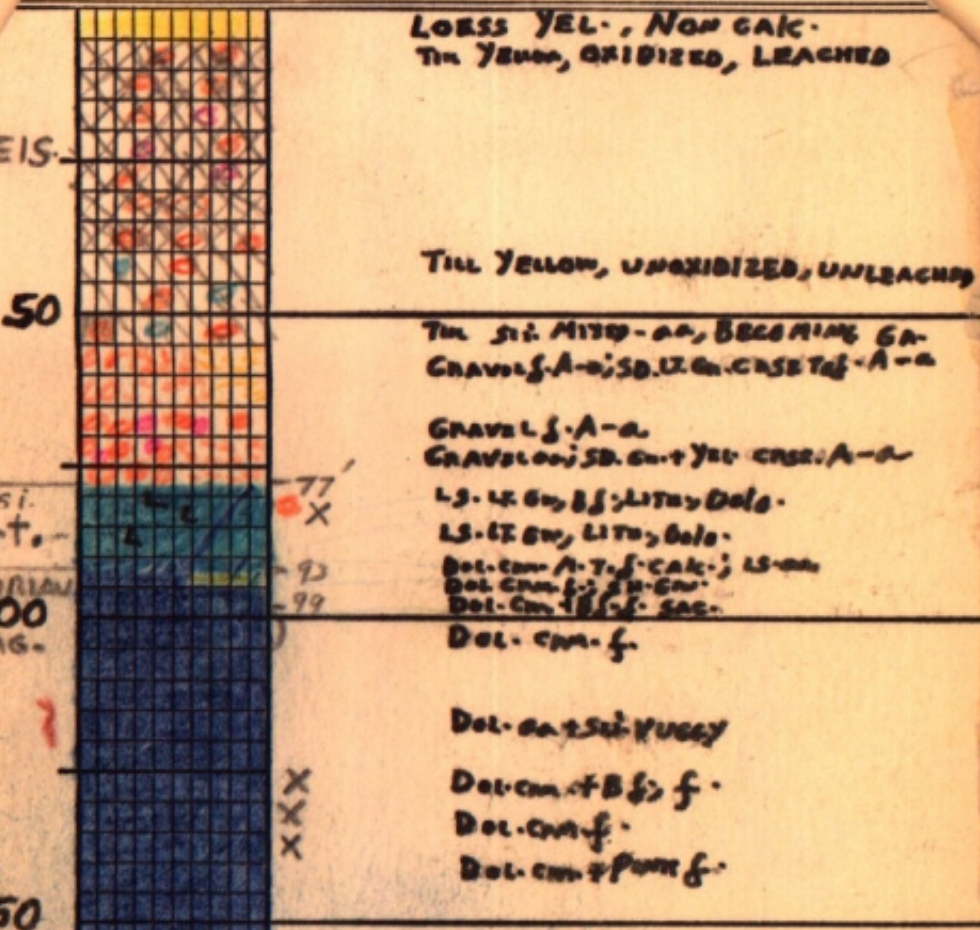 LOESS YEL., NON CALC.
TILL YELLOW, OXIDIZED, LEACHED
EIS.
TILL YELLOW, UNOXIDIZED, UNLEACHED
50
TILL sli. MIXED-aa, BECOMING GR.
GRAVEL f. A-a; SD. LT. GR. CRSE A-a
GRAVEL f. A-a
GRAVEL aa; SD. GR. + YEL. CRSE. A-a
77'
si.
LS. LT. GR, Bf; LITH, Dolo.
X
t.
LS. LT. GR, LITH, Dolo.
93
DOL. CRM. f. CALC.; LS. aa
DOL. CRM. f.; SH. GRN.
99
DOL. CRM. + Bf. f. SAC.
00
DOL. CRM. f.
G.
DOL. aa + Sli. VUGGY
X
DOL. CRM. + Bf; f.
X
DOL. CRM. f.
X
DOL. CRM. + PINK f.
50